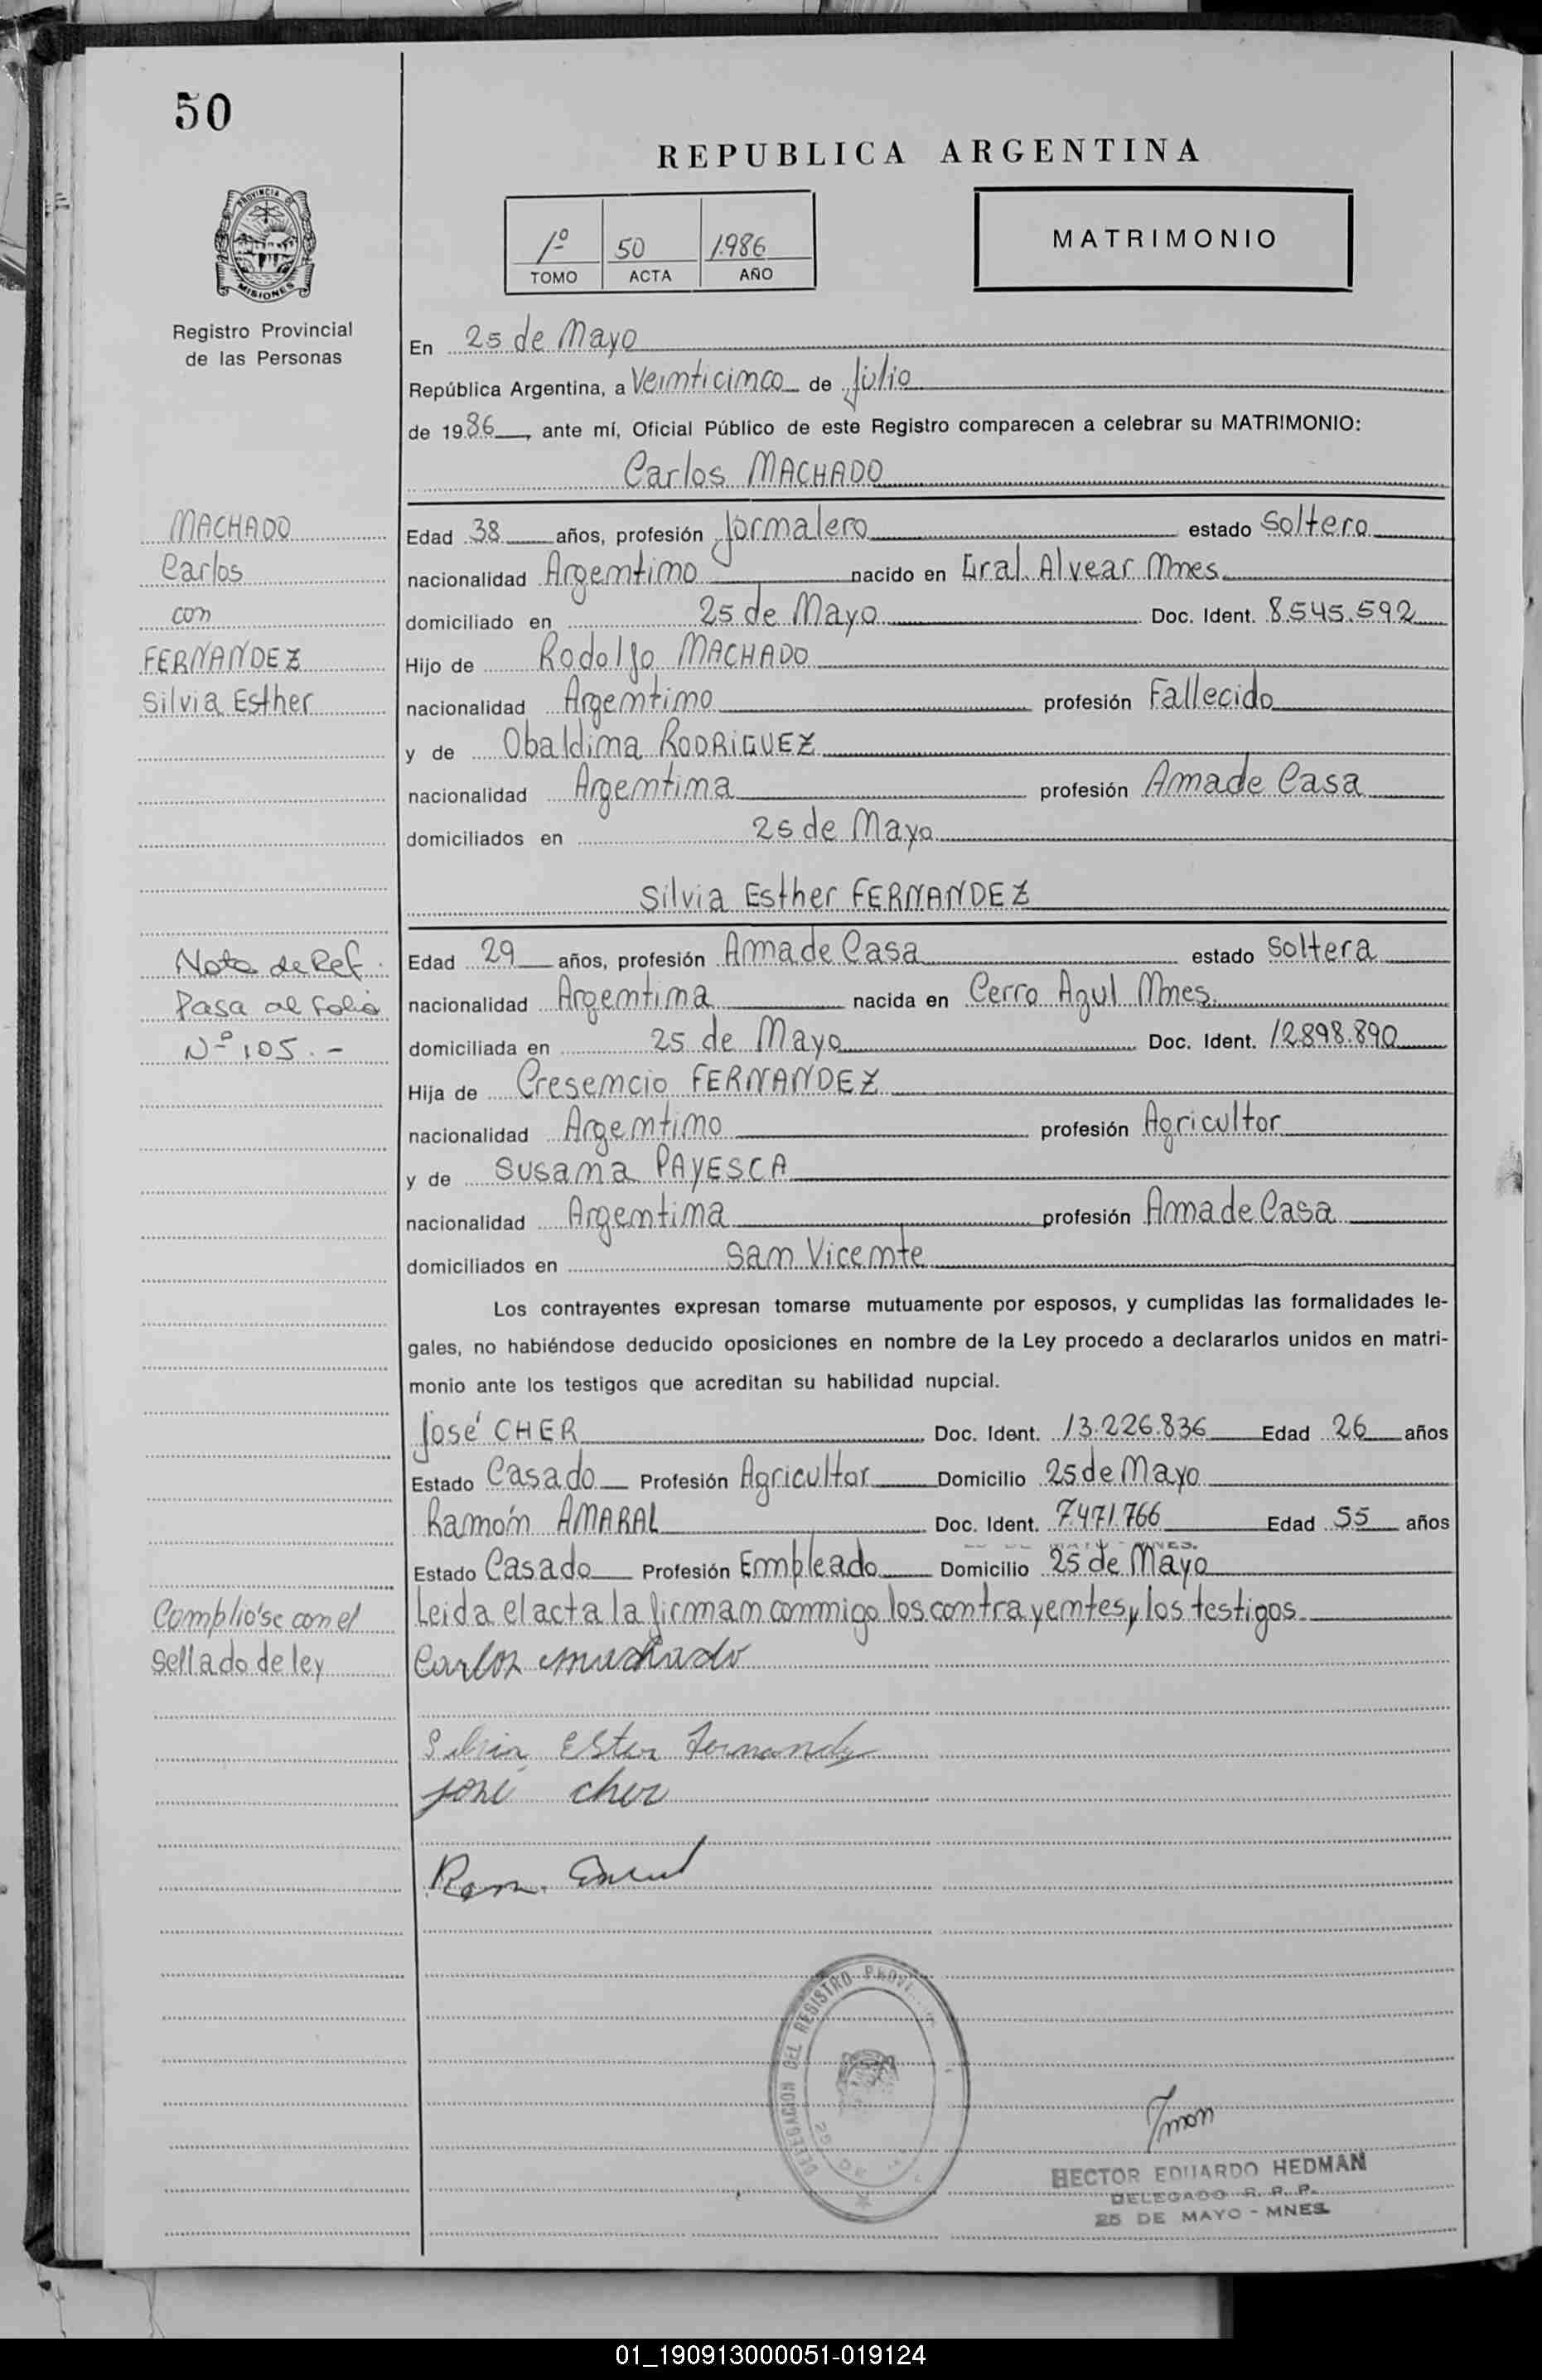 50
REPUBLICA ARGENTINA
PROVINCIA DE
MISIONES
1º 50 1986
TOMO ACTA AÑO
MATRIMONIO
Registro Provincial
de las Personas
En 25 de Mayo
República Argentina, a Veinticinco de Julio
de 1986, ante mí, Oficial Público de este Registro comparecen a celebrar su MATRIMONIO:
Carlos MACHADO
MACHADO
Carlos
con
FERNANDEZ
Silvia Esther
Edad 38 años, profesión Jornalero estado Soltero
nacionalidad Argentino nacido en Gral. Alvear Mnes
domiciliado en 25 de Mayo Doc. Ident. 8.545.592
Hijo de Rodolfo MACHADO
nacionalidad Argentino profesión Fallecido
y de Obaldina RODRIGUEZ
nacionalidad Argentina profesión Ama de Casa
domiciliados en 25 de Mayo
Silvia Esther FERNANDEZ
Nota de Ref.
Pasa al Folio
Nº 105.-
Edad 29 años, profesión Ama de Casa estado Soltera
nacionalidad Argentina nacida en Cerro Azul Mnes.
domiciliada en 25 de Mayo Doc. Ident. 12.898.890
Hija de Cresencio FERNANDEZ
nacionalidad Argentino profesión Agricultor
y de Susana PAYESCA
nacionalidad Argentina profesión Ama de Casa
domiciliados en San Vicente
Los contrayentes expresan tomarse mutuamente por esposos, y cumplidas las formalidades le-
gales, no habiéndose deducido oposiciones en nombre de la Ley procedo a declararlos unidos en matri-
monio ante los testigos que acreditan su habilidad nupcial.
José CHER Doc. Ident. 13.226.836 Edad 26 años
Estado Casado Profesión Agricultor Domicilio 25 de Mayo
Ramón AMARAL Doc. Ident. 7.471.766 Edad 55 años
Estado Casado Profesión Empleado Domicilio 25 de Mayo
Complió'se con el
Sellado de ley
Leida el acta la firman conmigo los contrayentes y los testigos.
Carlos Machado
Silvia Ester Fernandez
José Cher
DELEGACION DEL REGISTRO PROVI
25 DE
HECTOR EDUARDO HEDMAN
DELEGADO R. P. P.
25 DE MAYO - MNES.
01_190913000051-019124